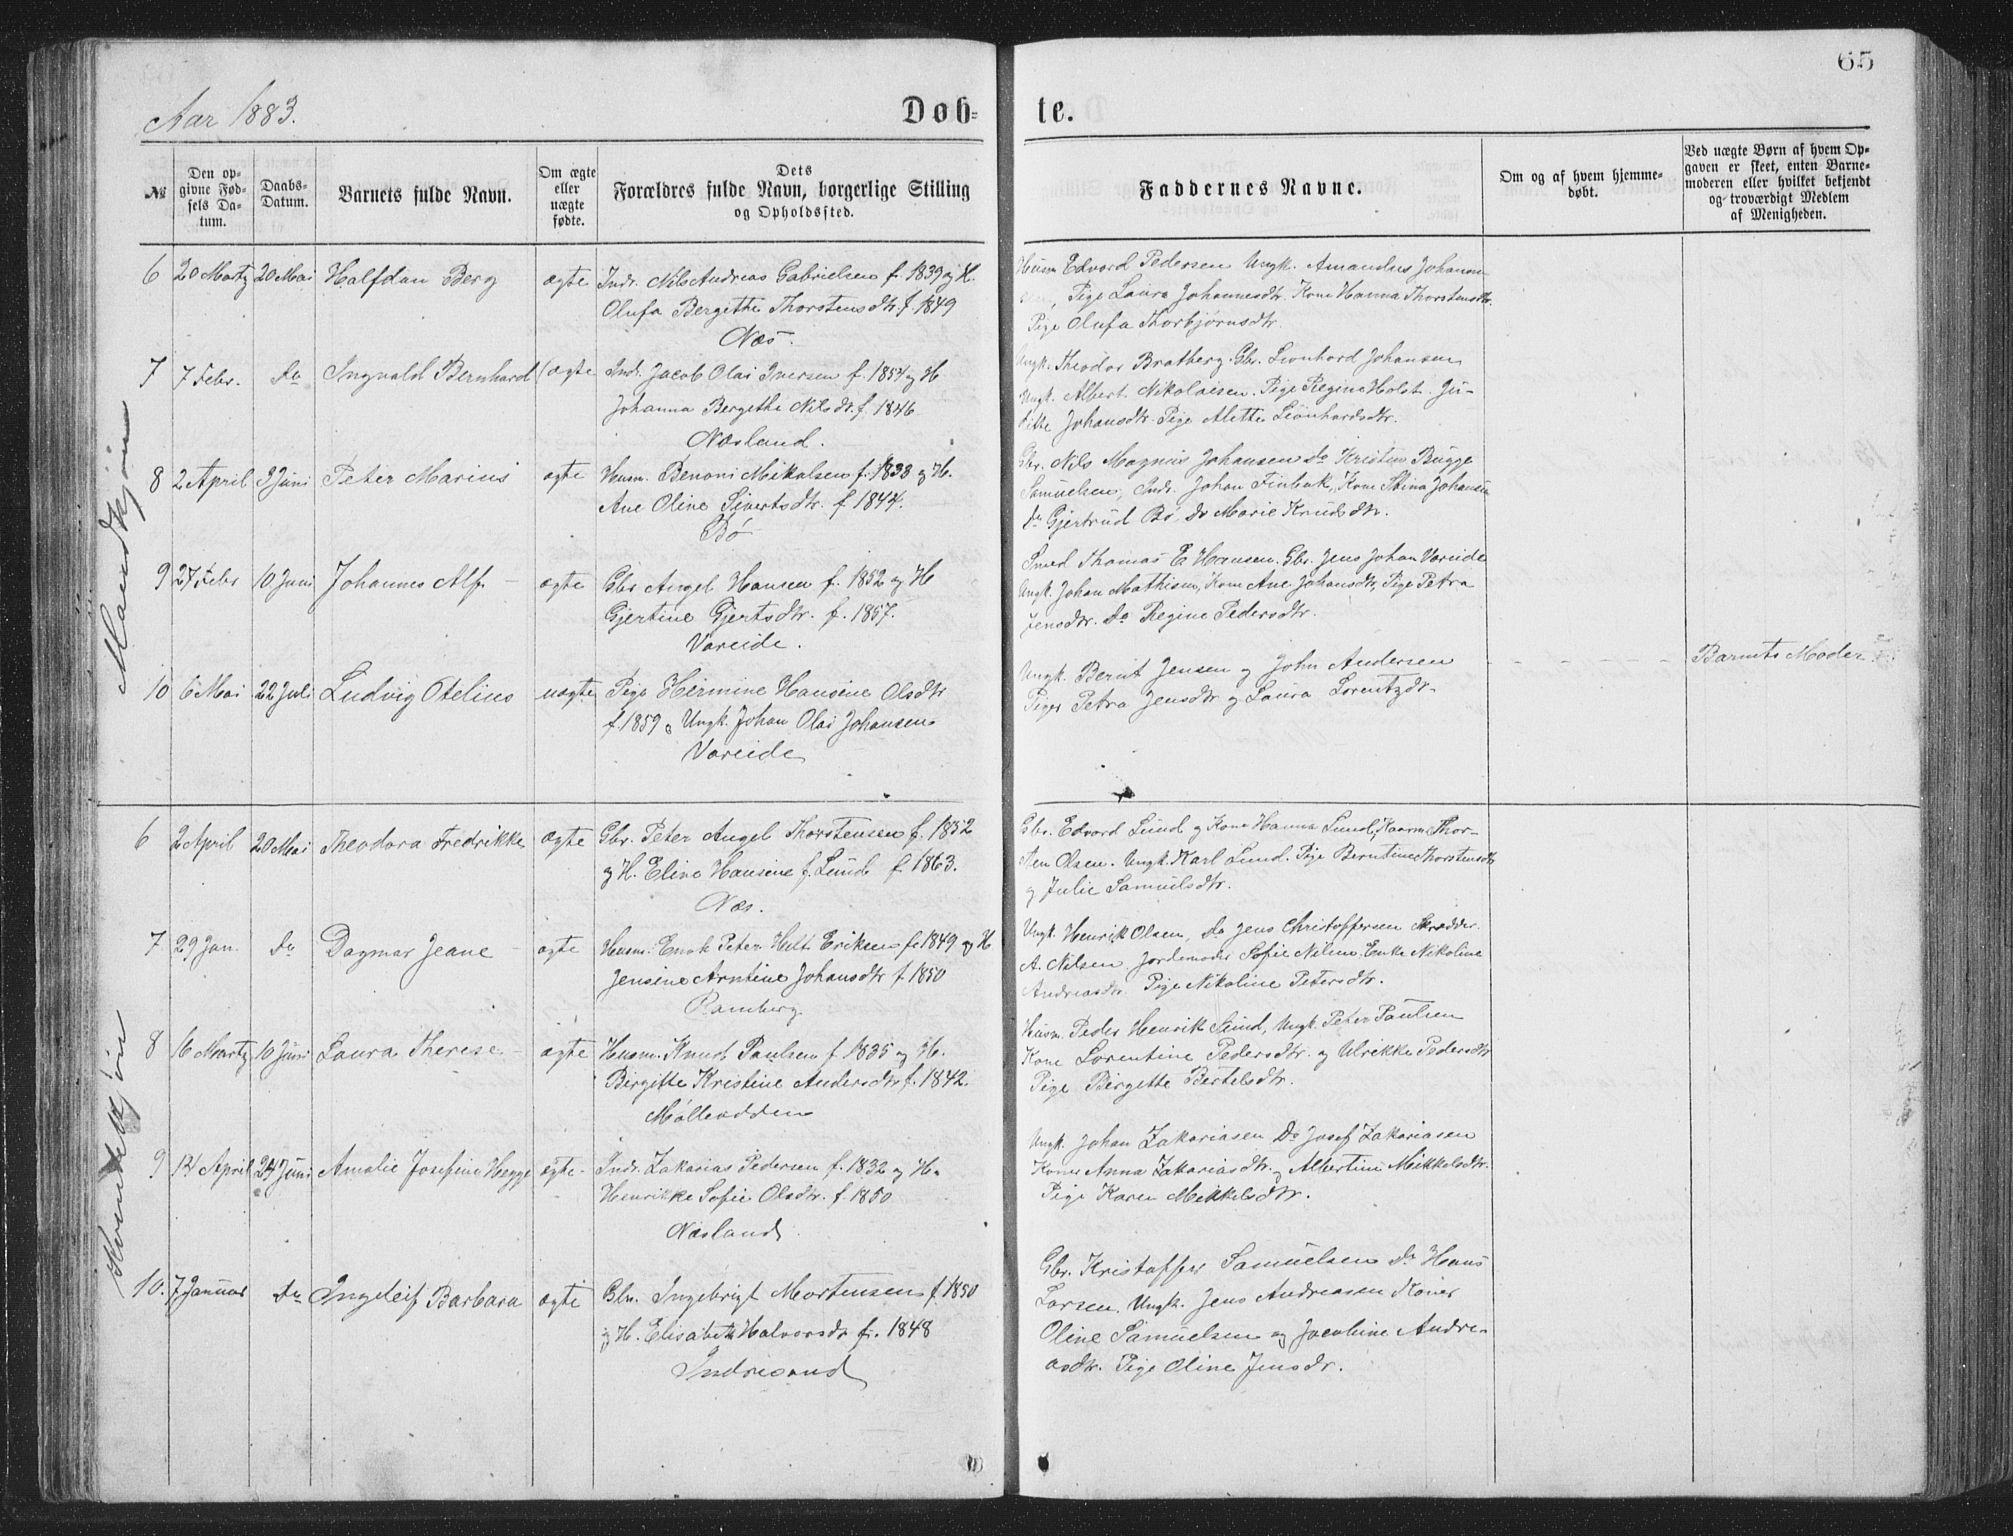 65
Aar 1883.
Døb-
te.
№
Den op-
givne Fød-
sels Da-
tum.
Daabs-
Datum.
Barnets fulde Navn.
Om ægte
eller
uægte
fødte.
Dets
Forældres fulde Navn, borgerlige Stilling
og Opholdssted.
Faddernes Navne.
Om og af hvem hjemme-
døbt.
Ved uægte Børn af hvem Op-
gaven er skeet, enten Barne-
moderen eller hvilket bekjendt
og troværdigt Medlem
af Menigheden.
Mandkjøn
6 20 Martz 20 Mai Halfdan Berg ægte
Indr. Nils Andreas Gabrielsen f. 1839 og H.
Olufa Bergithe Thorstensdtr f. 1849
Næs.
Husm Edvard Pedersen Ungk. Amandus Johann
Pige Laura Johannesdtr. Kone Hanna Thorstensdtr.
Pige Olufa Thorbjørnsdtr.
7 7 Febr. do Ingvald Bernhard ægte
Indr. Jacob Olai Iversen f. 1854 og H
Johanna Bergithe Nilsdtr. f. 1846
Næsland.
Ungk. Theodor Bratberg. Gbr. Leonhard Johansen
Ungk. Albert Nikolaisen. Pige Regine Holst. Ju-
ditte Johansdtr. Pige Alette Leonhardsdtr.
8 2 April 3 Juni Peter Marius ægte
Husm. Benoni Mikalsen f. 1838 og H.
Ane Oline Sivertsdtr. f. 1844.
Bø
Gbr. Nils Magnus Johansen do Kristen Bugge
Samuelsen, Indr. Johan Finbak, Kone Stina Johansdtr
do Gjertrud Bø do Marie Knudsdtr.
9 27 Febr 10 Juni Johannes Alf. ægte
Gbr Angel Hansen f. 1852 og H
Gjertine Gjertsdtr. f. 1857.
Vareide.
Smed Thomas E Hansen. Gbr. Jens Johan Vareide
Ungk. Johan Mathisen, Kone Ane Johansdtr, Pige Petra
Jensdtr. do Regine Pedersdtr.
10 6 Mai 22 Juli Ludvig Otelius uægte
Pige Hermine Hansine Olsdtr
f. 1859 og Ungk. Johan Olai Johansen
Vareide
Ungk. Bernt Jensen og John Andersen
Piger Petra Jensdtr og Laura Lorentzdtr.
Barnets Moder
Kvindekjøn
6 2 April 20 Mai Theodora Fredrikke ægte
Gbr. Peter Angel Thorstensen f. 1852
og H. Eline Hansine f. Lund f. 1863.
Næs.
Gbr. Edvard Lund og Kone Hanna Lund, Kaarm. Thor-
sten Olsen. Ungk. Karl Lund. Pige Berntine Thorstensdtr
og Julie Samuelsdtr.
7 29 Jan. do Dagmar Jeane ægte
Husm. Enok Peter Hilt Eriksen f. 1849 og H
Jensine Arntine Johansdtr f. 1850
Ramberg
Ungk. Henrik Olsen, do Jens Christoffersen Skrædder
A. Nilsen Jordemoder Sofie Nilsen. Enke Nikoline
Andreasdtr. Pige Nikoline Petersdtr.
8 16 Martz 10 Juni Laura Therese ægte
Husm. Knud Paulsen f. 1835 og H.
Birgitte Kristine Andersdtr f. 1842.
Mølleodden
Husm Peder Henrik Lund, Ungk. Peter Paulsen
Kone Lorentine Pedersdtr. og Ulrikke Pedersdtr
Pige Birgette Bertelsdtr.
9 14 April 24 Juni Amalie Josefine Hegge ægte
Indr. Zakarias Pedersen f. 1832 og H.
Henrikke Sofie Olsdtr. f. 1850
Næsland
Ungk. Johan Zakariasen Do Josef Zakariasen
Koner Anna Zakariasdtr. og Albertine Mikkelsdtr.
Pige Karen Mikkelsdtr.
10. 7 Januar do Ingeleif Barbara ægte
Gbr. Ingebrigt Mortensen f. 1850
og H. Elisabeth Halvorsdtr f. 1848
Indresand
Gbr. Kristoffer Samuelsen do Hans
Larsen, Ungk. Jens Andreasen Koner
Oline Samuelsen og Jacobine Andre-
asdtr. Pige Oline Jensdtr.